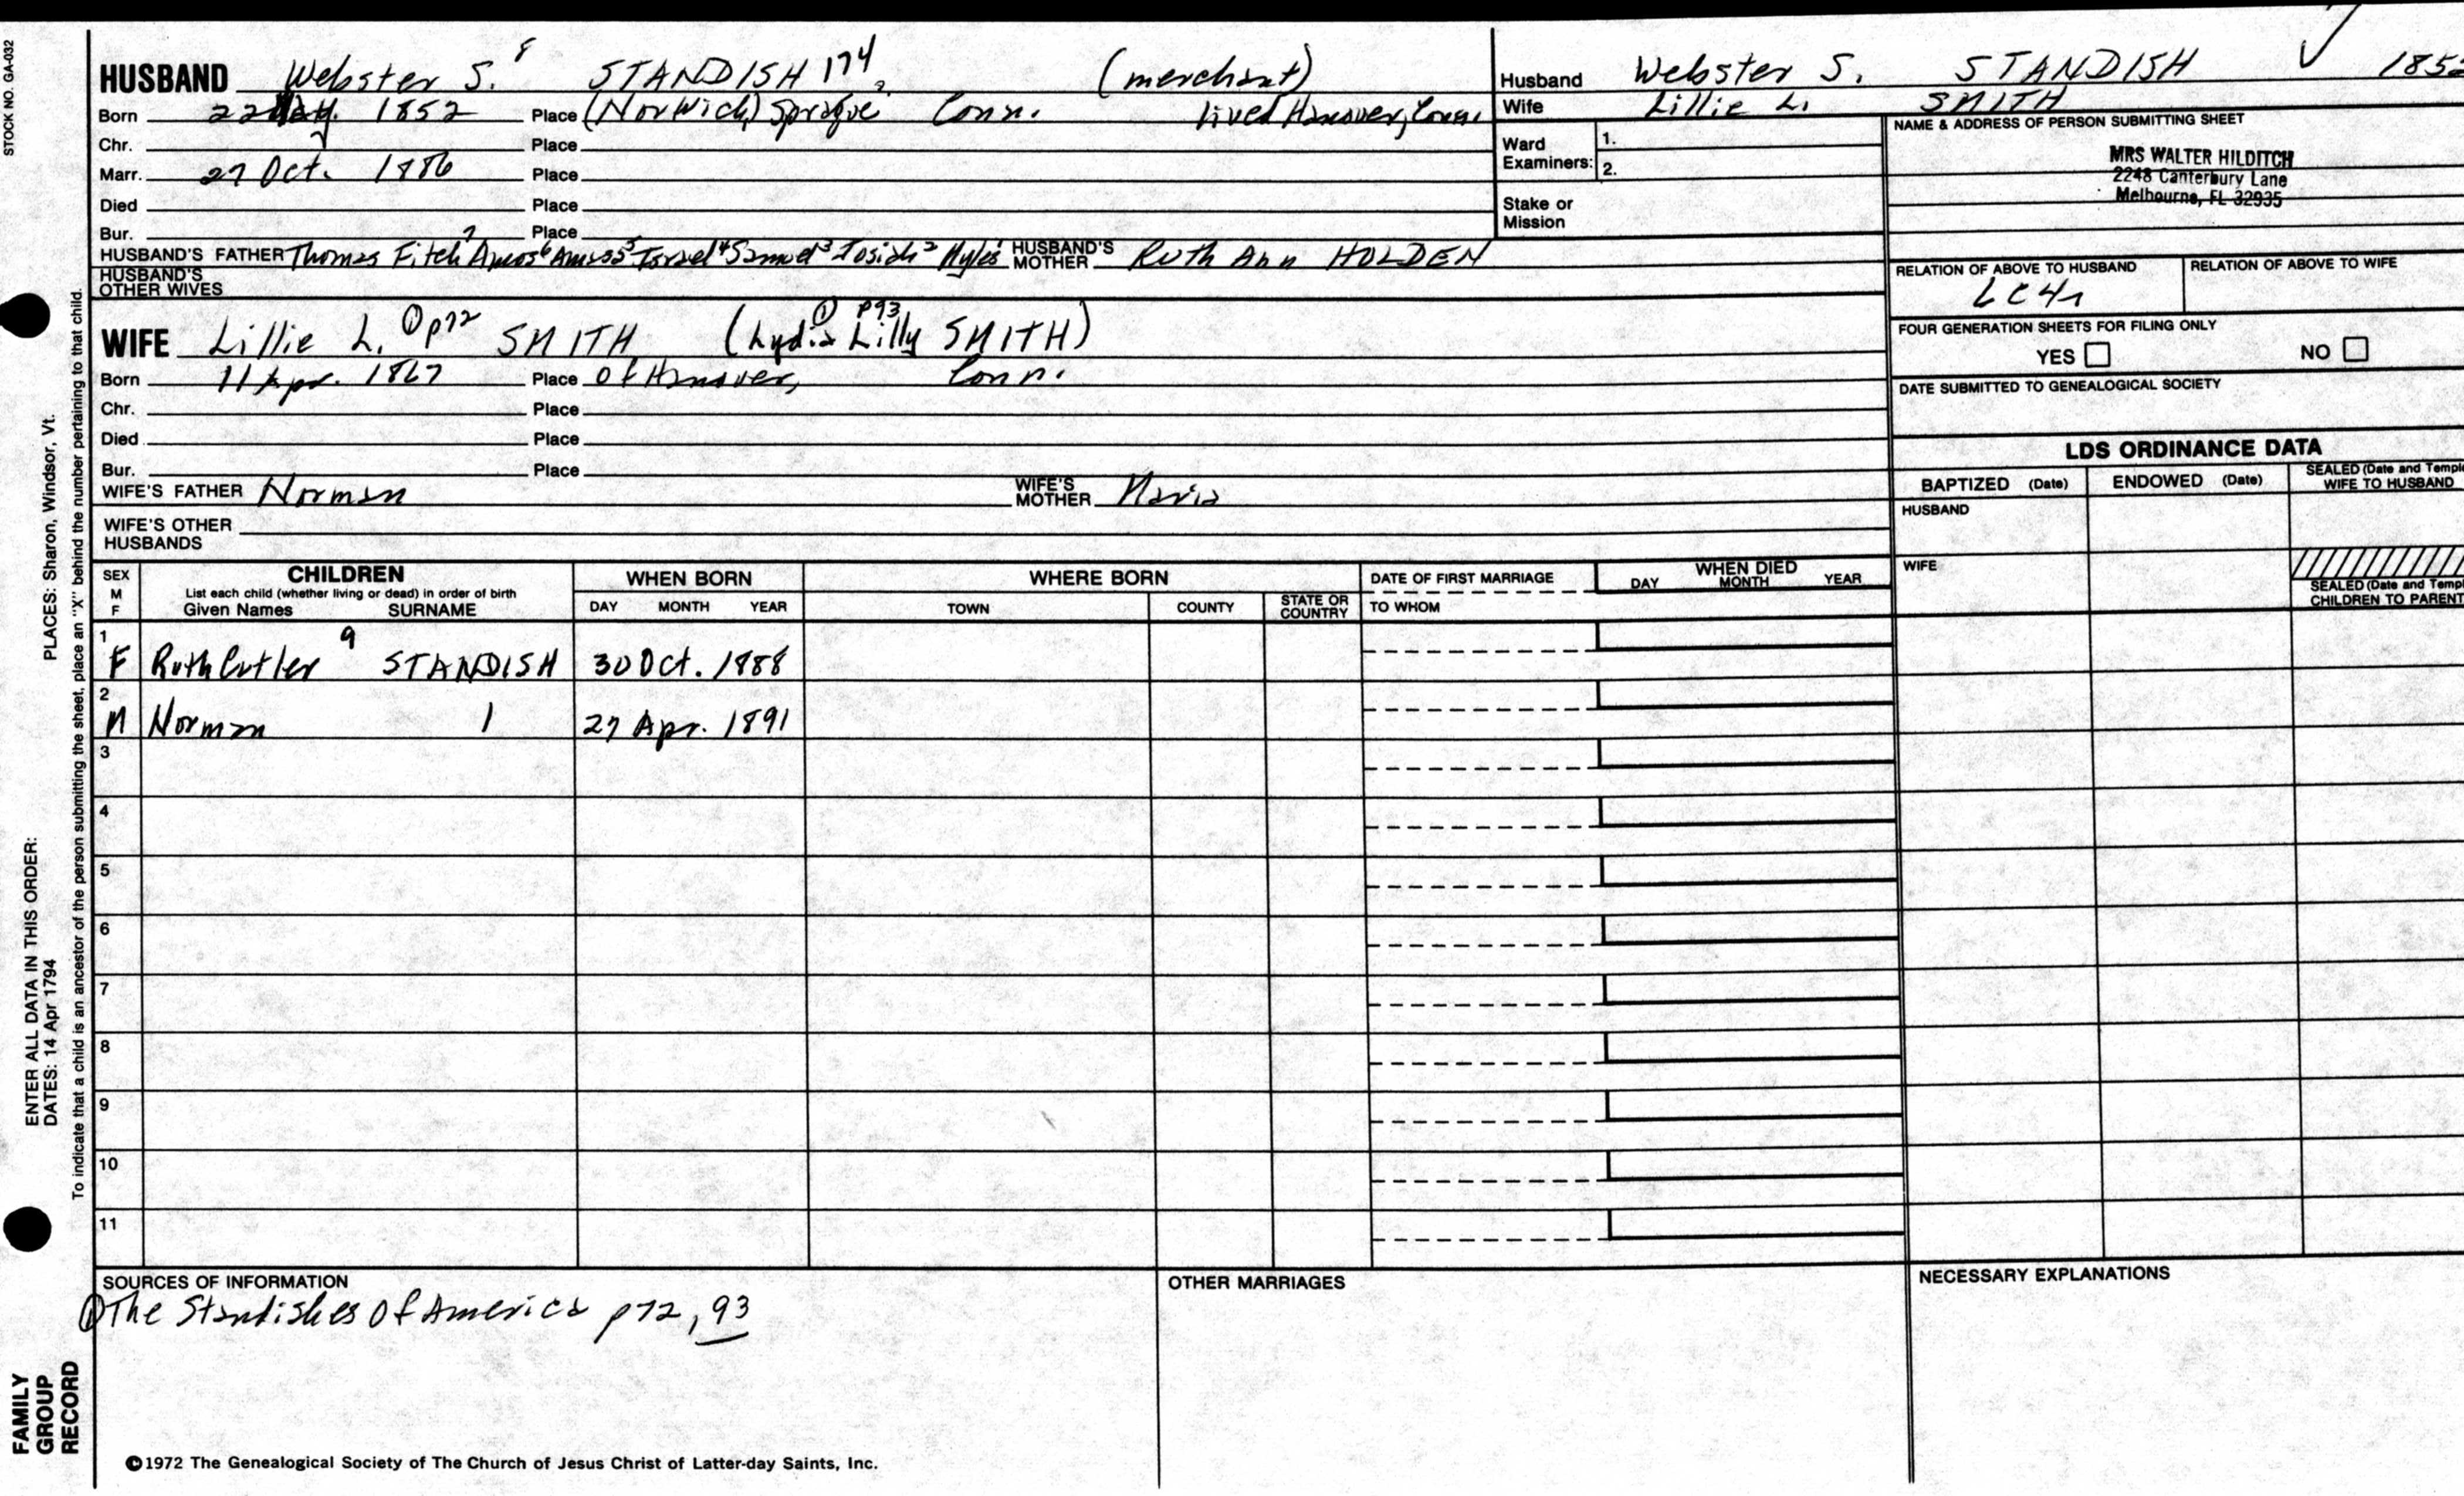 STOCK NO. GA-032
HUSBAND Webster S.8 STANDISH 174, (merchant)
Born 22 1852 Place (Norwich) Sprague Conn. lived Hanover, Conn.
Chr. Place
Marr. 27 Oct. 1886 Place
Died Place
Bur. Place
HUSBAND'S FATHER Thomas Fitch7 Amos6 Amasa5 Israel4 Samuel3 Josiah2 Myles1 HUSBAND'S MOTHER Ruth Ann HOLDEN
HUSBAND'S OTHER WIVES
WIFE Lillie L. ① p72 SMITH (Lydia Lilly SMITH) ① p93
Born 11 Apr. 1867 Place of Hanover, Conn.
Chr. Place
Died Place
Bur. Place
WIFE'S FATHER Norman WIFE'S MOTHER Maria
WIFE'S OTHER HUSBANDS
Husband Webster S. STANDISH 1852
Wife Lillie L. SMITH
Ward Examiners: 1.
2.
Stake or Mission
NAME & ADDRESS OF PERSON SUBMITTING SHEET
MRS WALTER HILDITCH
2248 Canterbury Lane
Melbourne, FL 32935
RELATION OF ABOVE TO HUSBAND RELATION OF ABOVE TO WIFE
FOUR GENERATION SHEETS FOR FILING ONLY
YES NO
DATE SUBMITTED TO GENEALOGICAL SOCIETY
LDS ORDINANCE DATA
BAPTIZED (Date) ENDOWED (Date) SEALED (Date and Temple) WIFE TO HUSBAND
HUSBAND
WIFE
SEALED (Date and Temple) CHILDREN TO PARENTS
SEX M F
CHILDREN
List each child (whether living or dead) in order of birth
Given Names SURNAME
WHEN BORN
DAY MONTH YEAR
WHERE BORN
TOWN COUNTY STATE OR COUNTRY
DATE OF FIRST MARRIAGE
TO WHOM
WHEN DIED
DAY MONTH YEAR
1 F Ruth Cutler 9 STANDISH 30 Oct. 1888
2 M Norman 1 27 Apr. 1891
3
4
5
6
7
8
9
10
11
SOURCES OF INFORMATION
① The Standishes of America p72, 93
OTHER MARRIAGES
NECESSARY EXPLANATIONS
©1972 The Genealogical Society of The Church of Jesus Christ of Latter-day Saints, Inc.
ENTER ALL DATA IN THIS ORDER:
DATES: 14 Apr 1794 PLACES: Sharon, Windsor, Vt.
To indicate that a child is an ancestor of the person submitting the sheet, place an "X" behind the number pertaining to that child.
FAMILY
GROUP
RECORD